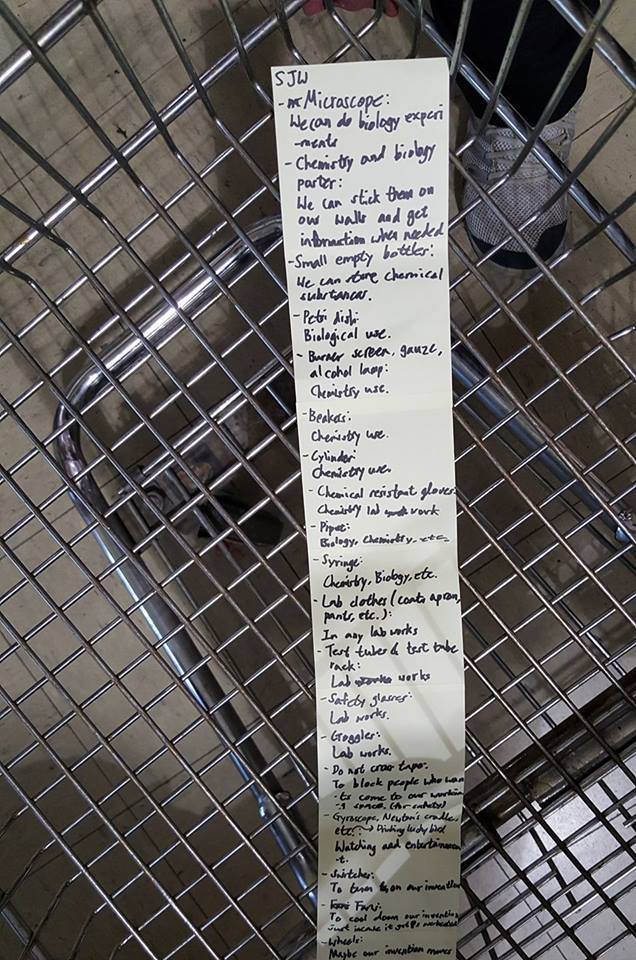 SJW
- Microscope:
We can do biology experi
-ments
- Chemistry and biology
poster:
We can stick them on
our walls and get
information when needed
- Small empty bottles:
We can store chemical
substances.
- Petri dish:
Biological use.
- Burner screen, gauze,
alcohol lamp:
Chemistry use.
- Beakers:
Chemistry use.
- Cylinder:
Chemistry use.
- Chemical resistant gloves:
Chemistry lab work
- Pipet:
Biology, Chemistry, etc.
- Syringe:
Chemistry, Biology, etc.
- Lab clothes (coats, apron,
pants, etc.):
In any lab works
- Test tubes & test tube
rack:
Lab works
- Safety glasses:
Lab works.
- Goggles:
Lab works.
- Do not cross tape:
To block people who wan
-ts come to our workin
-g space. (for safety)
- Gyroscope, Newton's cradle,
etc.: → Drinking lucky bird
Watching and entertainmen
-t.
- Switches:
To turn on our invention
- Fans:
To cool down our invention
just incase it gets overheated
- Wheels:
Maybe our invention moves